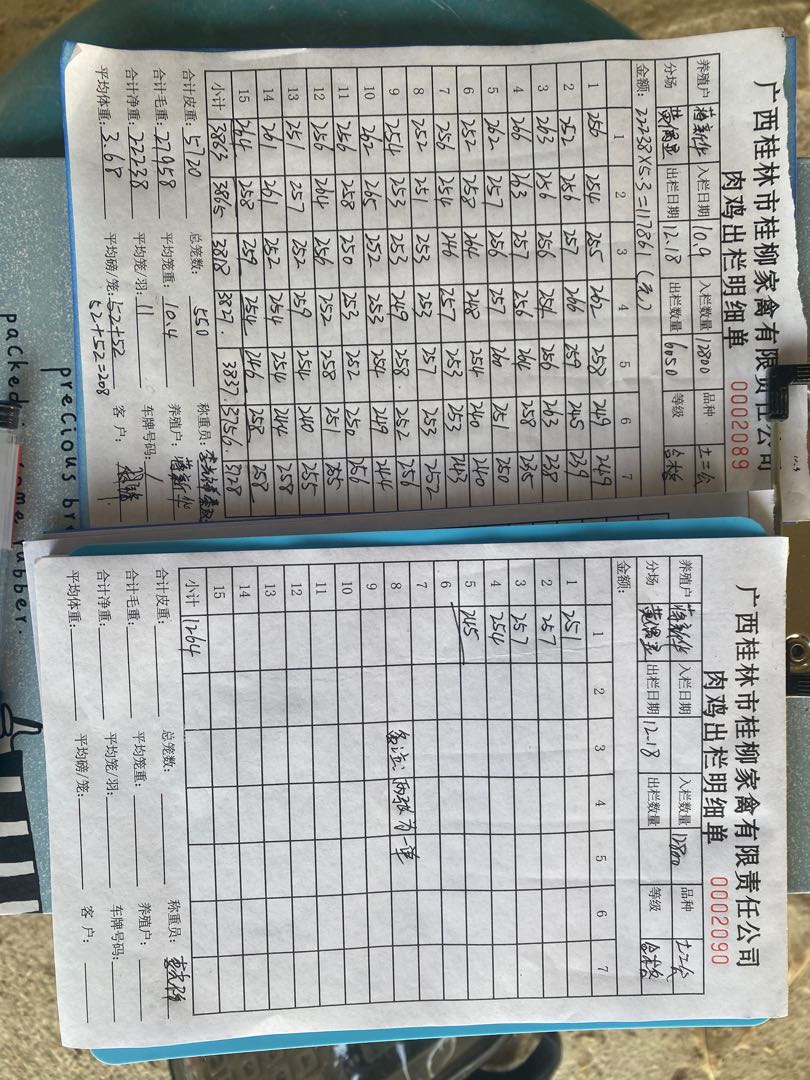 广西桂林市桂柳家禽有限责任公司
肉鸡出栏明细单
0002089
养殖户 蒋新华 入栏日期 10.9 入栏数量 12800 品种 土二公
分场 出栏日期 12.18 出栏数量 6050 等级 合格
金额: 22238×5.3=117861 (元)
1 2 3 4 5 6 7
1 250 254 255 262 258 249 249
2 252 256 257 266 259 245 239
3 263 256 256 254 256 263 238
4 266 263 257 256 264 258 235
5 262 257 256 257 260 251 250
6 252 258 264 248 254 240 240
7 256 254 246 257 253 253 243
8 252 251 253 253 257 253 252
9 254 253 253 249 258 252 256
10 262 265 252 253 254 249 244
11 256 258 250 253 252 250 256
12 256 264 256 252 258 251 255
13 251 257 252 259 254 240 255
14 261 261 252 254 254 244 258
15 264 258 259 254 246 258 258
小计 3863 3865 3818 3827 3837 3756 3728
合计皮重: 5720 总笼数: 550 称重员:
合计毛重: 27958 平均笼重: 10.4 养殖户: 蒋新华
合计净重: 22238 平均笼/羽: 11 车牌号码: /
平均体重: 3.68 平均磅/笼: 52+52 客户:
52+52=208
广西桂林市桂柳家禽有限责任公司
肉鸡出栏明细单
0002090
养殖户 蒋新华 入栏日期 入栏数量 12800 品种 土二公
分场 出栏日期 12.18 出栏数量 等级 合格
金额:
1 2 3 4 5 6 7
1 251
2 257
3 257
4 254
5 245
6
7
8 备注: 两张为一单
9
10
11
12
13
14
15
小计 1264
合计皮重: 总笼数: 称重员:
合计毛重: 平均笼重: 养殖户:
合计净重: 平均笼/羽: 车牌号码:
平均体重: 平均磅/笼: 客户:
precious
packed
rubber.